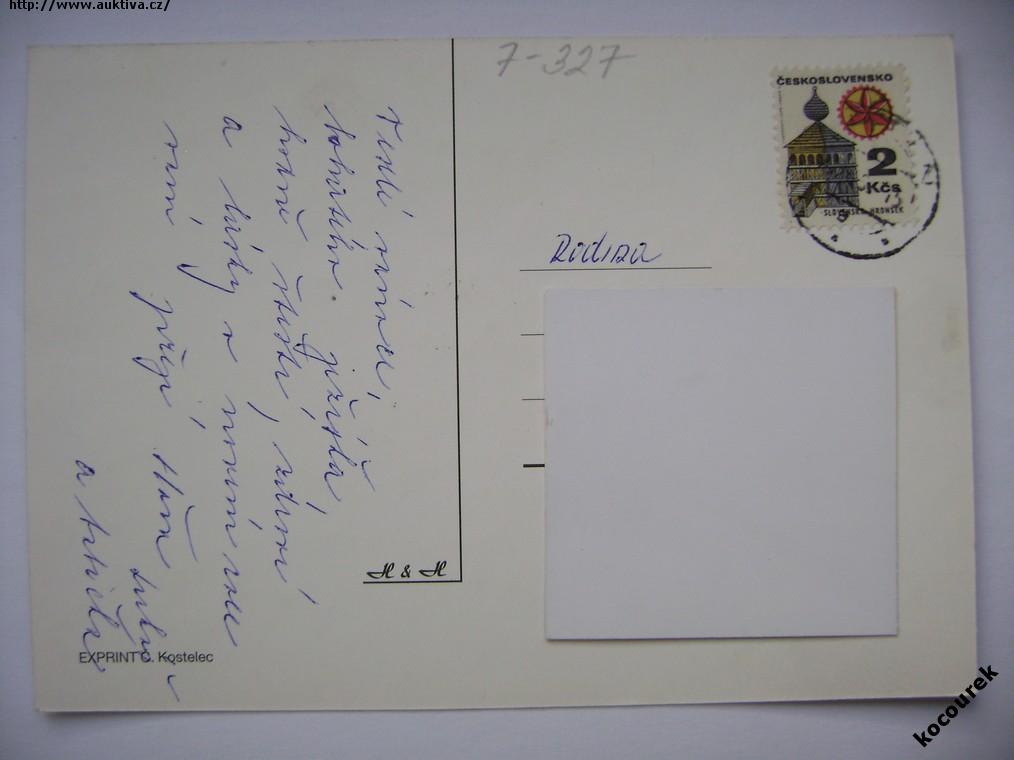 http://www.auktiva.cz/
7-327
ČESKOSLOVENSKO
2
Kčs
SLOVENSKO HRONSEK
Rodina
Veselé vánoce,
bohatého ježíška,
hodně štěstí, zdraví
a lásky v novém roce
vám přejí
a
H & H
EXPRINT Č. Kostelec
kocourek